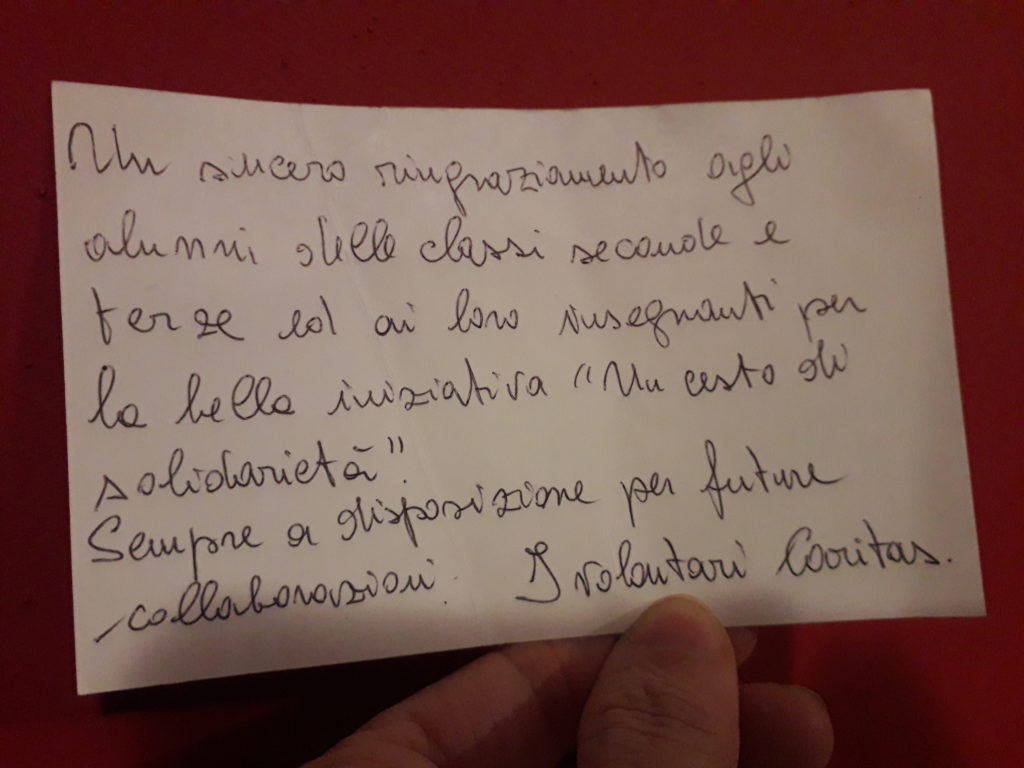 Un sincero ringraziamento agli
alunni delle classi seconde e
terze ed ai loro insegnanti per
la bella iniziativa "Un cesto di
solidarietà"
Sempre a disposizione per future
collaborazioni. I volontari Caritas.